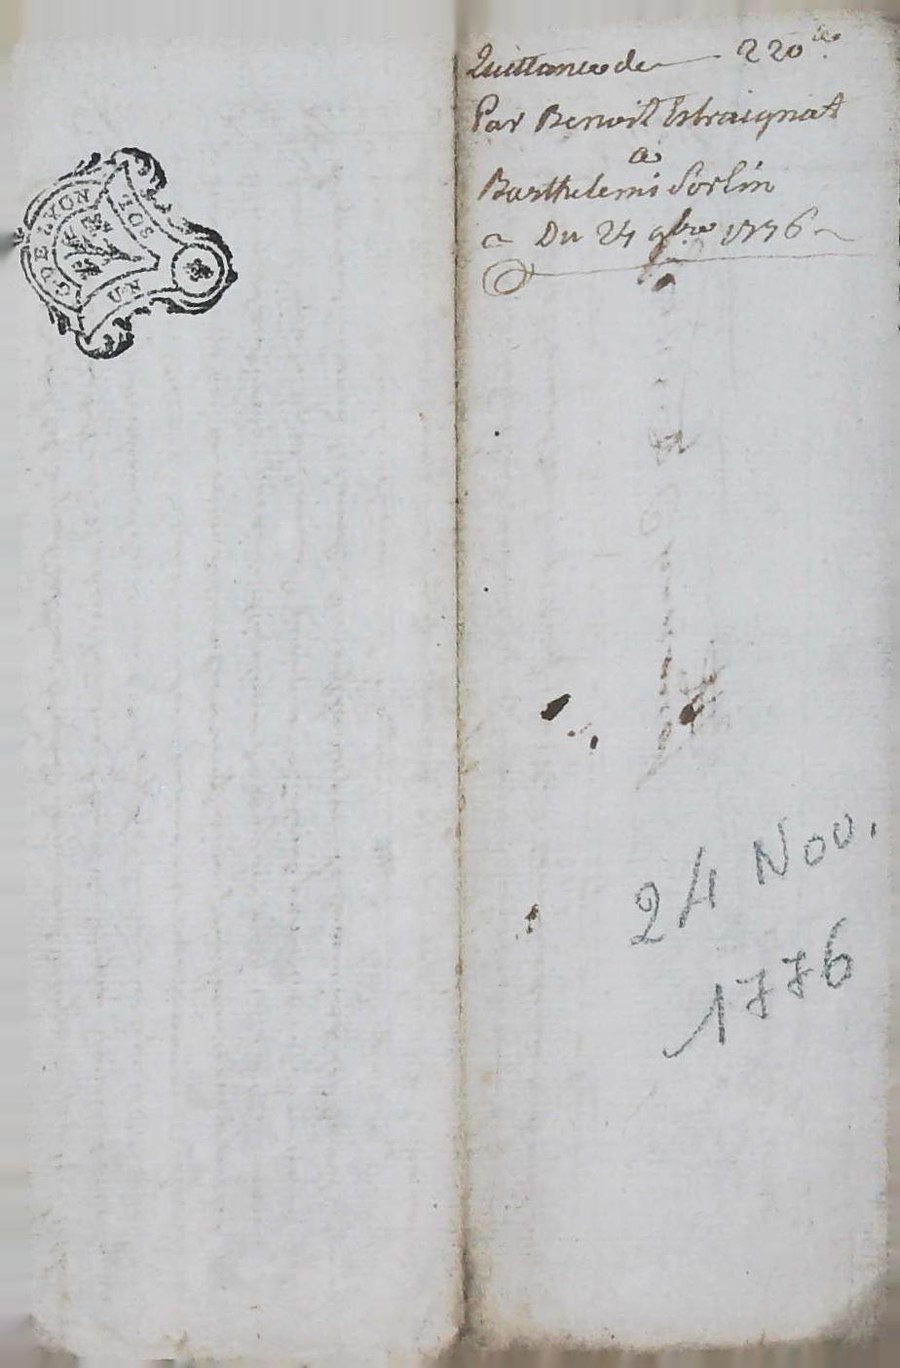 G DE LYON
UN SOL
Quittance de 220 ₶
Par Benoit Estraignat
a
Barthelemi Sorlin
Du 24 9bre 1776
24 Nov.
1776